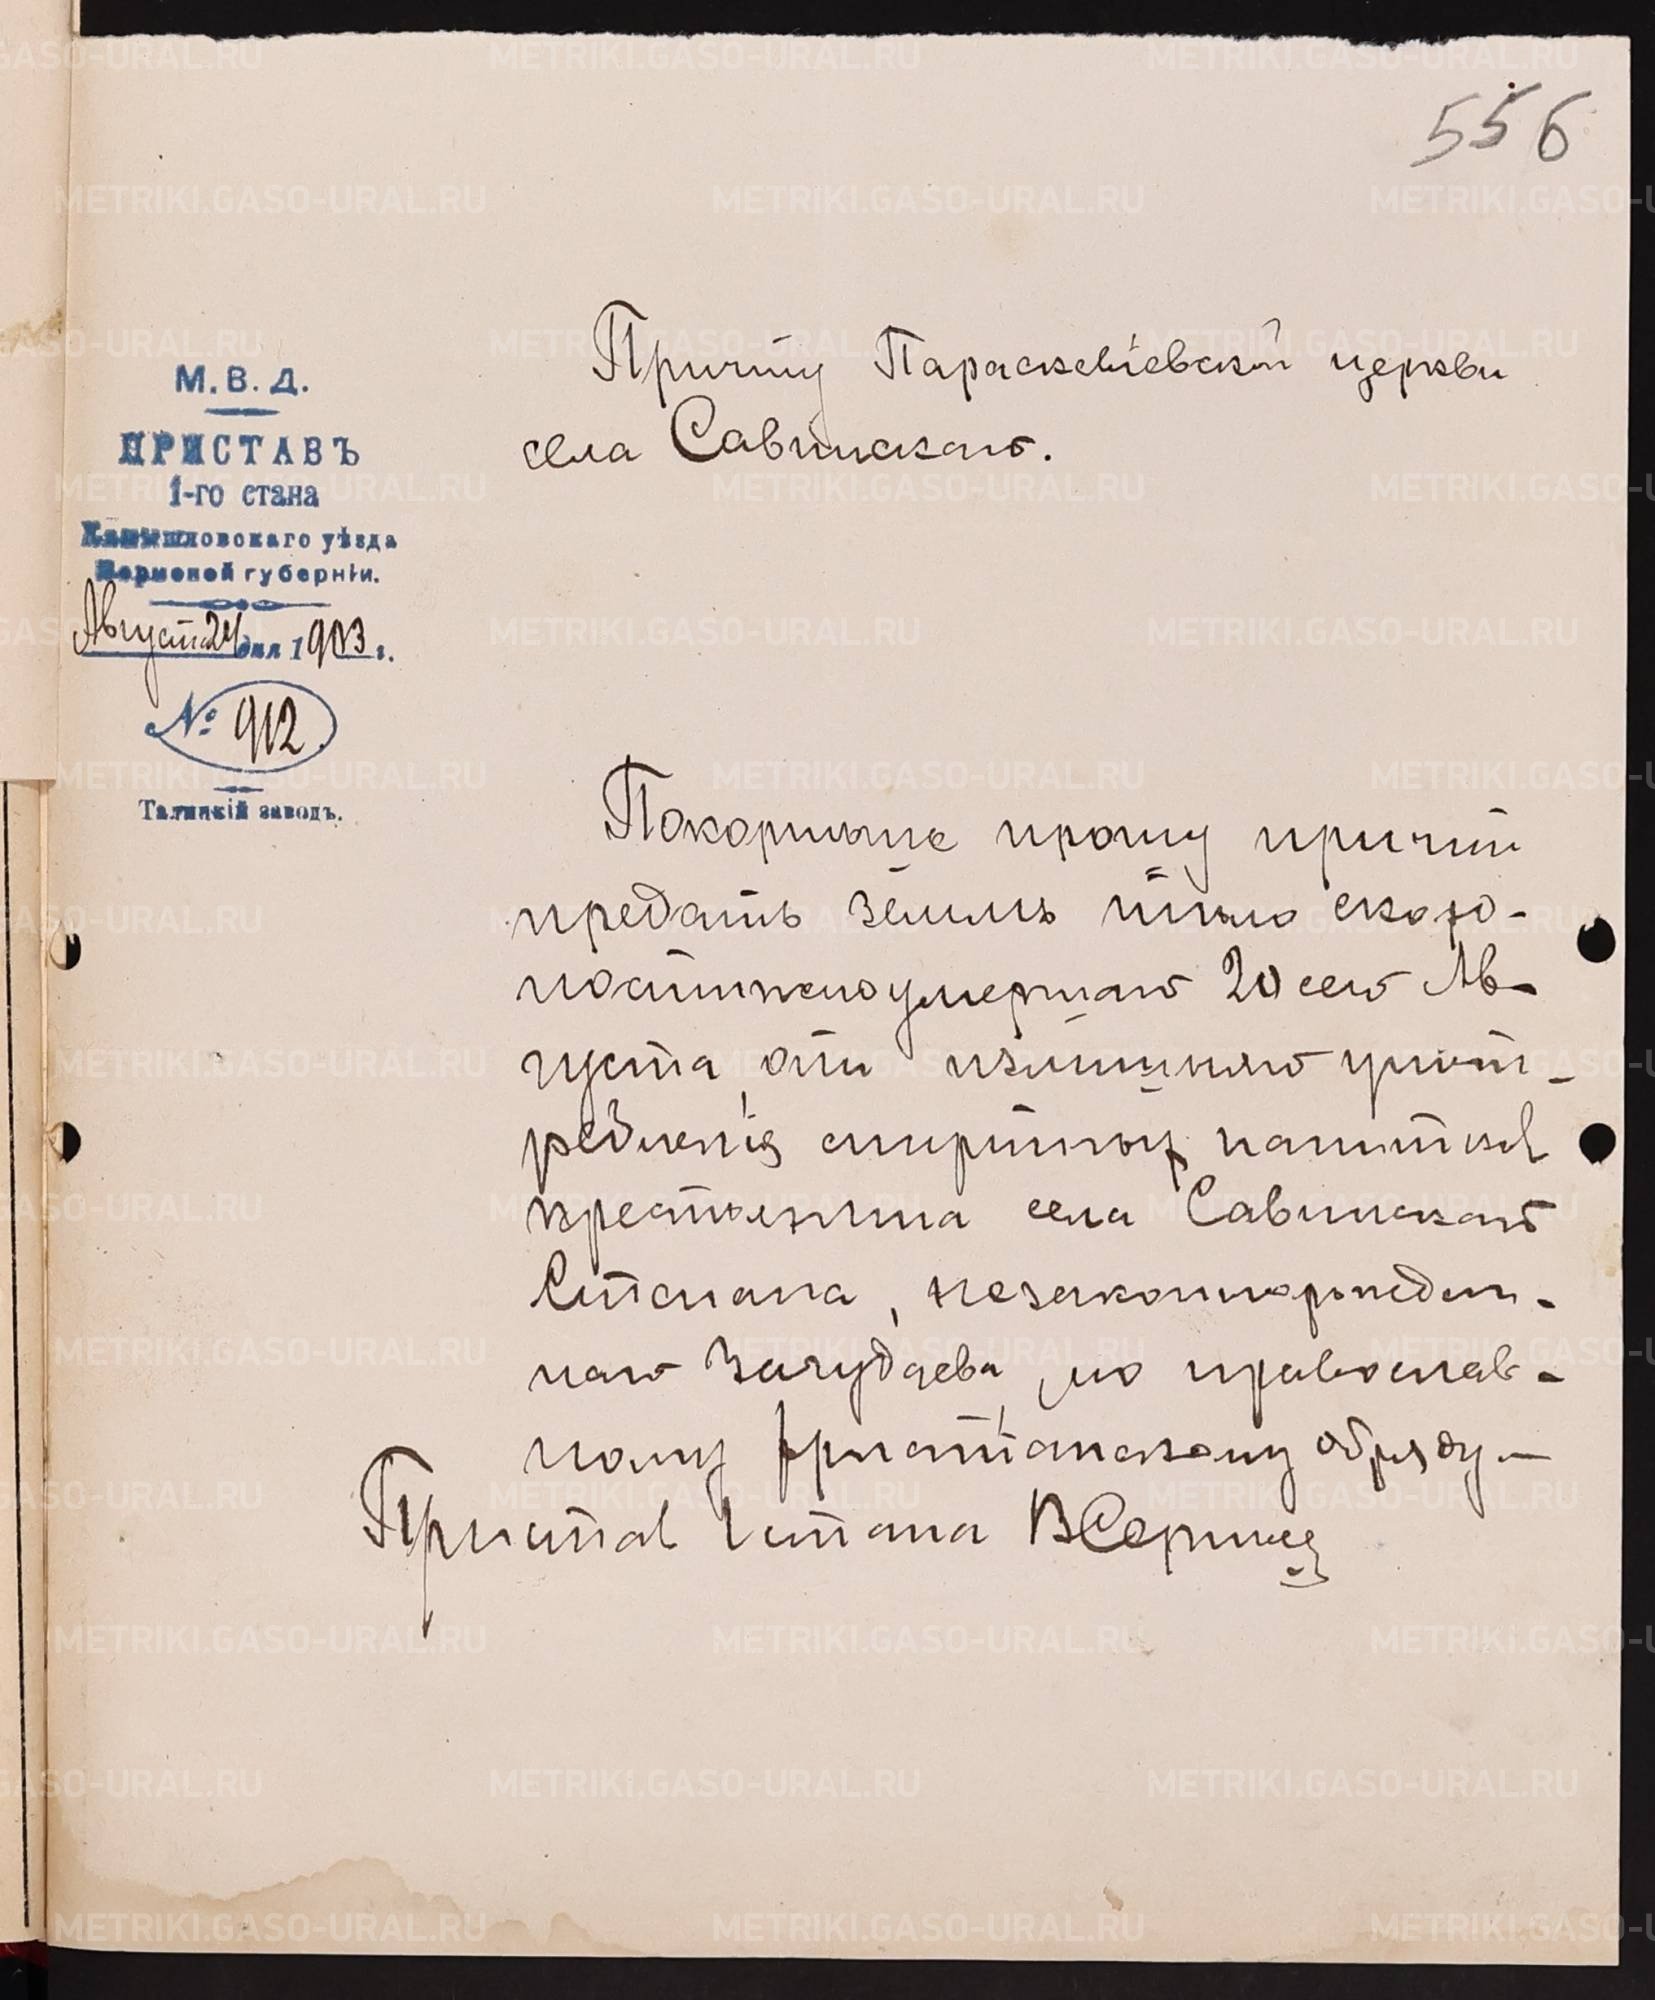 556
М. В. Д.
ПРИСТАВЪ
1-го стана
Камышловскаго уѣзда
Пермской губерніи.
Августа 24 дня 1903 г.
№ 912
Талицкій заводъ.
Причту Параскевіевской церкви
села Савинскаго.
Покорнѣйше прошу причт
предать землѣ тѣло скоро-
постижноумершаго 20 сего Ав-
густа, отъ излишняго упот-
ребленія спиртных напитков
крестьянина села Савинскаго
Степана, незаконнорожден-
наго по православ-
ному христіанскому обряду
Пристав 1 стана
METRIKI.GASO-URAL.RU